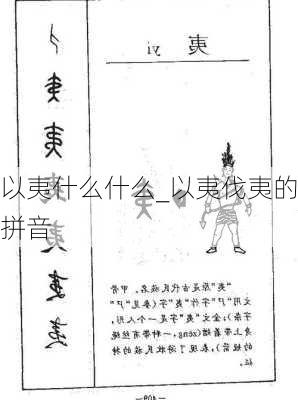 夷 yi
以夷什么什么_以夷伐夷的
拼音
“夷”是原古代民族名。甲骨
文用“尸”字作“夷”字(参见“尸”
字条);金文“夷”字是一个人形,
身上带着矰(zeng,一种带有丝绳
的短箭),表现了游牧民族的特
征。
— 409 —